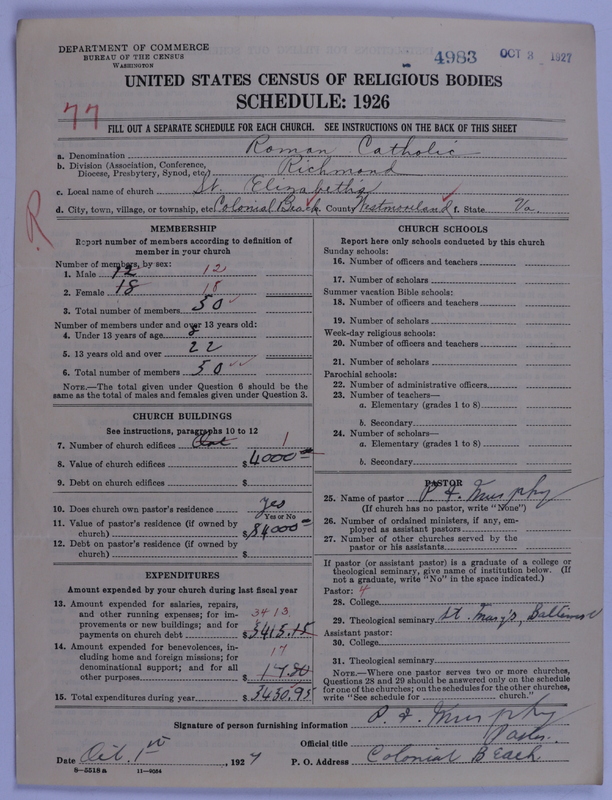 DEPARTMENT OF COMMERCE
BUREAU OF THE CENSUS
WASHINGTON
4983 OCT 3 1927
UNITED STATES CENSUS OF RELIGIOUS BODIES
SCHEDULE: 1926
77
FILL OUT A SEPARATE SCHEDULE FOR EACH CHURCH. SEE INSTRUCTIONS ON THE BACK OF THIS SHEET
a. Denomination Roman Catholic
b. Division (Association, Conference, Diocese, Presbytery, Synod, etc.) Richmond
c. Local name of church St. Elizabeth's
d. City, town, village, or township, etc. Colonial Beach e. County Westmoreland f. State Va.
R
MEMBERSHIP
Report number of members according to definition of
member in your church
Number of members, by sex:
1. Male 12 12
2. Female 18 18
3. Total number of members 30
Number of members under and over 13 years old:
4. Under 13 years of age 8
5. 13 years old and over 22
6. Total number of members 30
NOTE.—The total given under Question 6 should be the
same as the total of males and females given under Question 3.
CHURCH BUILDINGS
See instructions, paragraphs 10 to 12
7. Number of church edifices One 1
8. Value of church edifices $4000
9. Debt on church edifices $
10. Does church own pastor's residence yes
Yes or No
11. Value of pastor's residence (if owned by
church) $4000
12. Debt on pastor's residence (if owned by
church) $
EXPENDITURES
Amount expended by your church during last fiscal year
13. Amount expended for salaries, repairs,
and other running expenses; for im-
provements or new buildings; and for
payments on church debt 3413 $3413.15
14. Amount expended for benevolences, in-
cluding home and foreign missions; for
denominational support; and for all
other purposes 17 17.80
15. Total expenditures during year $3430.95
CHURCH SCHOOLS
Report here only schools conducted by this church
Sunday schools:
16. Number of officers and teachers
17. Number of scholars
Summer vacation Bible schools:
18. Number of officers and teachers
19. Number of scholars
Week-day religious schools:
20. Number of officers and teachers
21. Number of scholars
Parochial schools:
22. Number of administrative officers
23. Number of teachers—
a. Elementary (grades 1 to 8)
b. Secondary
24. Number of scholars—
a. Elementary (grades 1 to 8)
b. Secondary
PASTOR
25. Name of pastor P. F. Murphy
(If church has no pastor, write "None")
26. Number of ordained ministers, if any, em-
ployed as assistant pastors
27. Number of other churches served by the
pastor or his assistants
If pastor (or assistant pastor) is a graduate of a college or
theological seminary, give name of institution below. (If
not a graduate, write "No" in the space indicated.)
Pastor: 4
28. College
29. Theological seminary St. Mary's, Baltimore
Assistant pastor:
30. College
31. Theological seminary
NOTE.—Where one pastor serves two or more churches,
Questions 28 and 29 should be answered only on the schedule
for one of the churches; on the schedules for the other churches,
write "See schedule for church."
Signature of person furnishing information P. F. Murphy
Official title Pastor.
Date Oct. 1st, 1927 P. O. Address Colonial Beach
8—5518a 11—9024